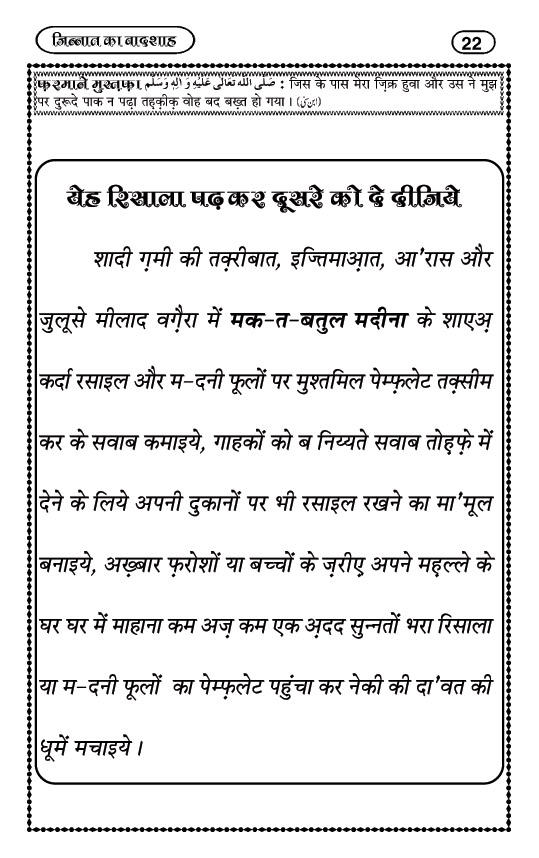 जिन्नात का बादशाह
22
फ़रमाने मुस्तफ़ा صَلَّى اللهُ تَعَالٰى عَلَيْهِ وَاٰلِهٖ وَسَلَّم : जिस के पास मेरा ज़िक्र हुवा और उस ने मुझ
पर दुरूदे पाक न पढ़ा तह़क़ीक़ वोह बद बख़्त हो गया । (ابن سنی)
येह रिसाला पढ़ कर दूसरे को दे दीजिये
शादी ग़मी की तक़्रीबात, इज्तिमाआ़त, आ'रास और
जुलूसे मीलाद वग़ैरा में मक-त-बतुल मदीना के शाएअ़
कर्दा रसाइल और म-दनी फूलों पर मुश्तमिल पेम्फ़लेट तक़्सीम
कर के सवाब कमाइये, गाहकों को ब निय्यते सवाब तोह़फ़े में
देने के लिये अपनी दुकानों पर भी रसाइल रखने का मा'मूल
बनाइये, अख़्बार फ़रोशों या बच्चों के ज़रीए़ अपने मह़ल्ले के
घर घर में माहाना कम अज़ कम एक अ़दद सुन्नतों भरा रिसाला
या म-दनी फूलों का पेम्फ़लेट पहुंचा कर नेकी की दा'वत की
धूमें मचाइये ।